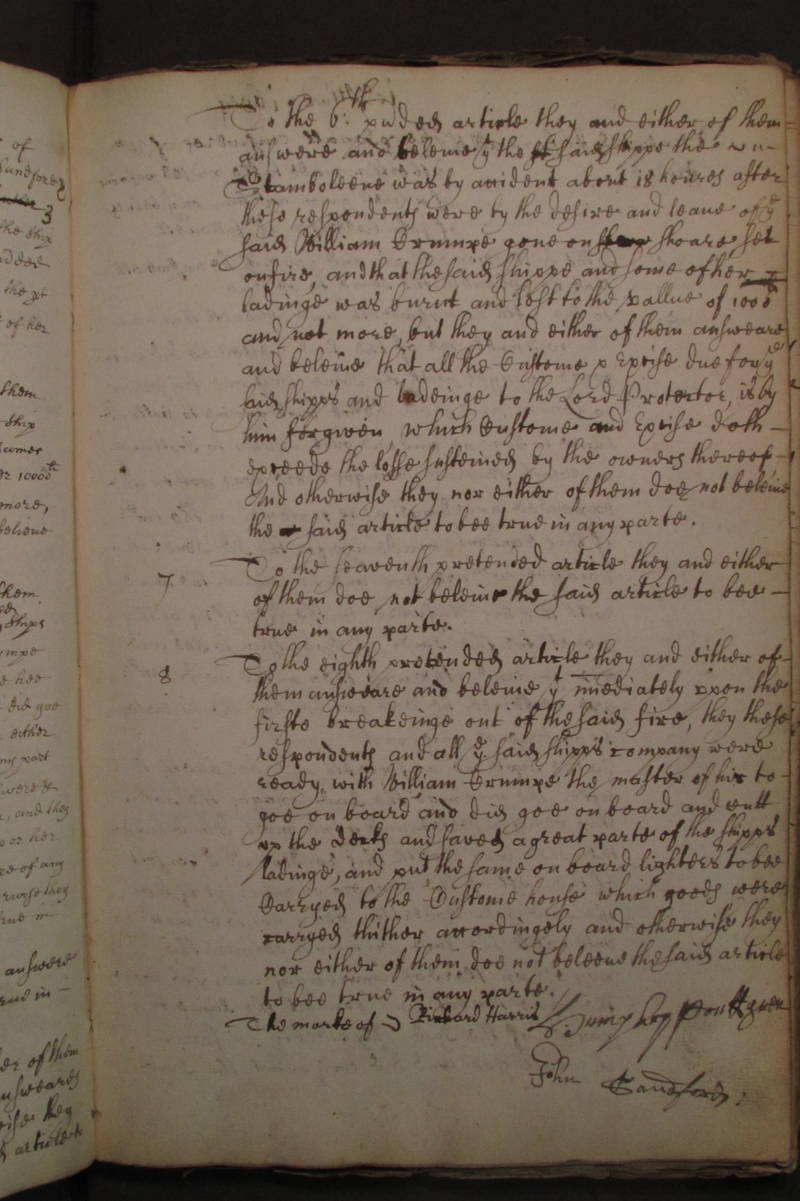 of
Sandford
the ship
the
of her
them
ship
more,
beleive
them
ships
hee
did goe
either
any part
and they
or her
of any
they
true in
answere
true in -
of them
answeare
they
article to
To the 6:th pnded article they and either of them
answere and beleive yt the said shippe the
Stamboleene was by accident about 18 houres after
these respondents were by the desire and leave of ye
said William Crumpe gone on shoare set
on fire, and that the said shippe and some of her
ladinge was burnt and lost to the vallue of 1000li
and not more, but they and either of them answeare
and beleive that all the Custome & Excise due for ye
said shipps and ladeinge to the Lord Protector, is by
him forgiven, which Custome and Excise doth -
exceede the losse susteined by the owners thereof -
And otherwise they nor either of them doe not beleive
the said article to bee true in any parte.
7 To the seaventh pretended article they and either
of them doe not beleive the said article to bee -
true in any parte.
8 To the eighth pretended article they and either of
them answeare and beleive yt imediately upon the
firste breakeinge out of the said fire, they these
respondents and all ye said shipps company were
ready with William Crumpe the master of hir to -
goe on board and did goe on board and cutt
up the decks and saved a great parte of the shipps
ladinge, and put the same on board lighters to bee
Carryed to the Custome house which goods were
carryed thither accordingely and otherwise they
nor either of them doe not beleeve the said article
to bee true in any parte.
The marke of Richard Harris
John Sandford